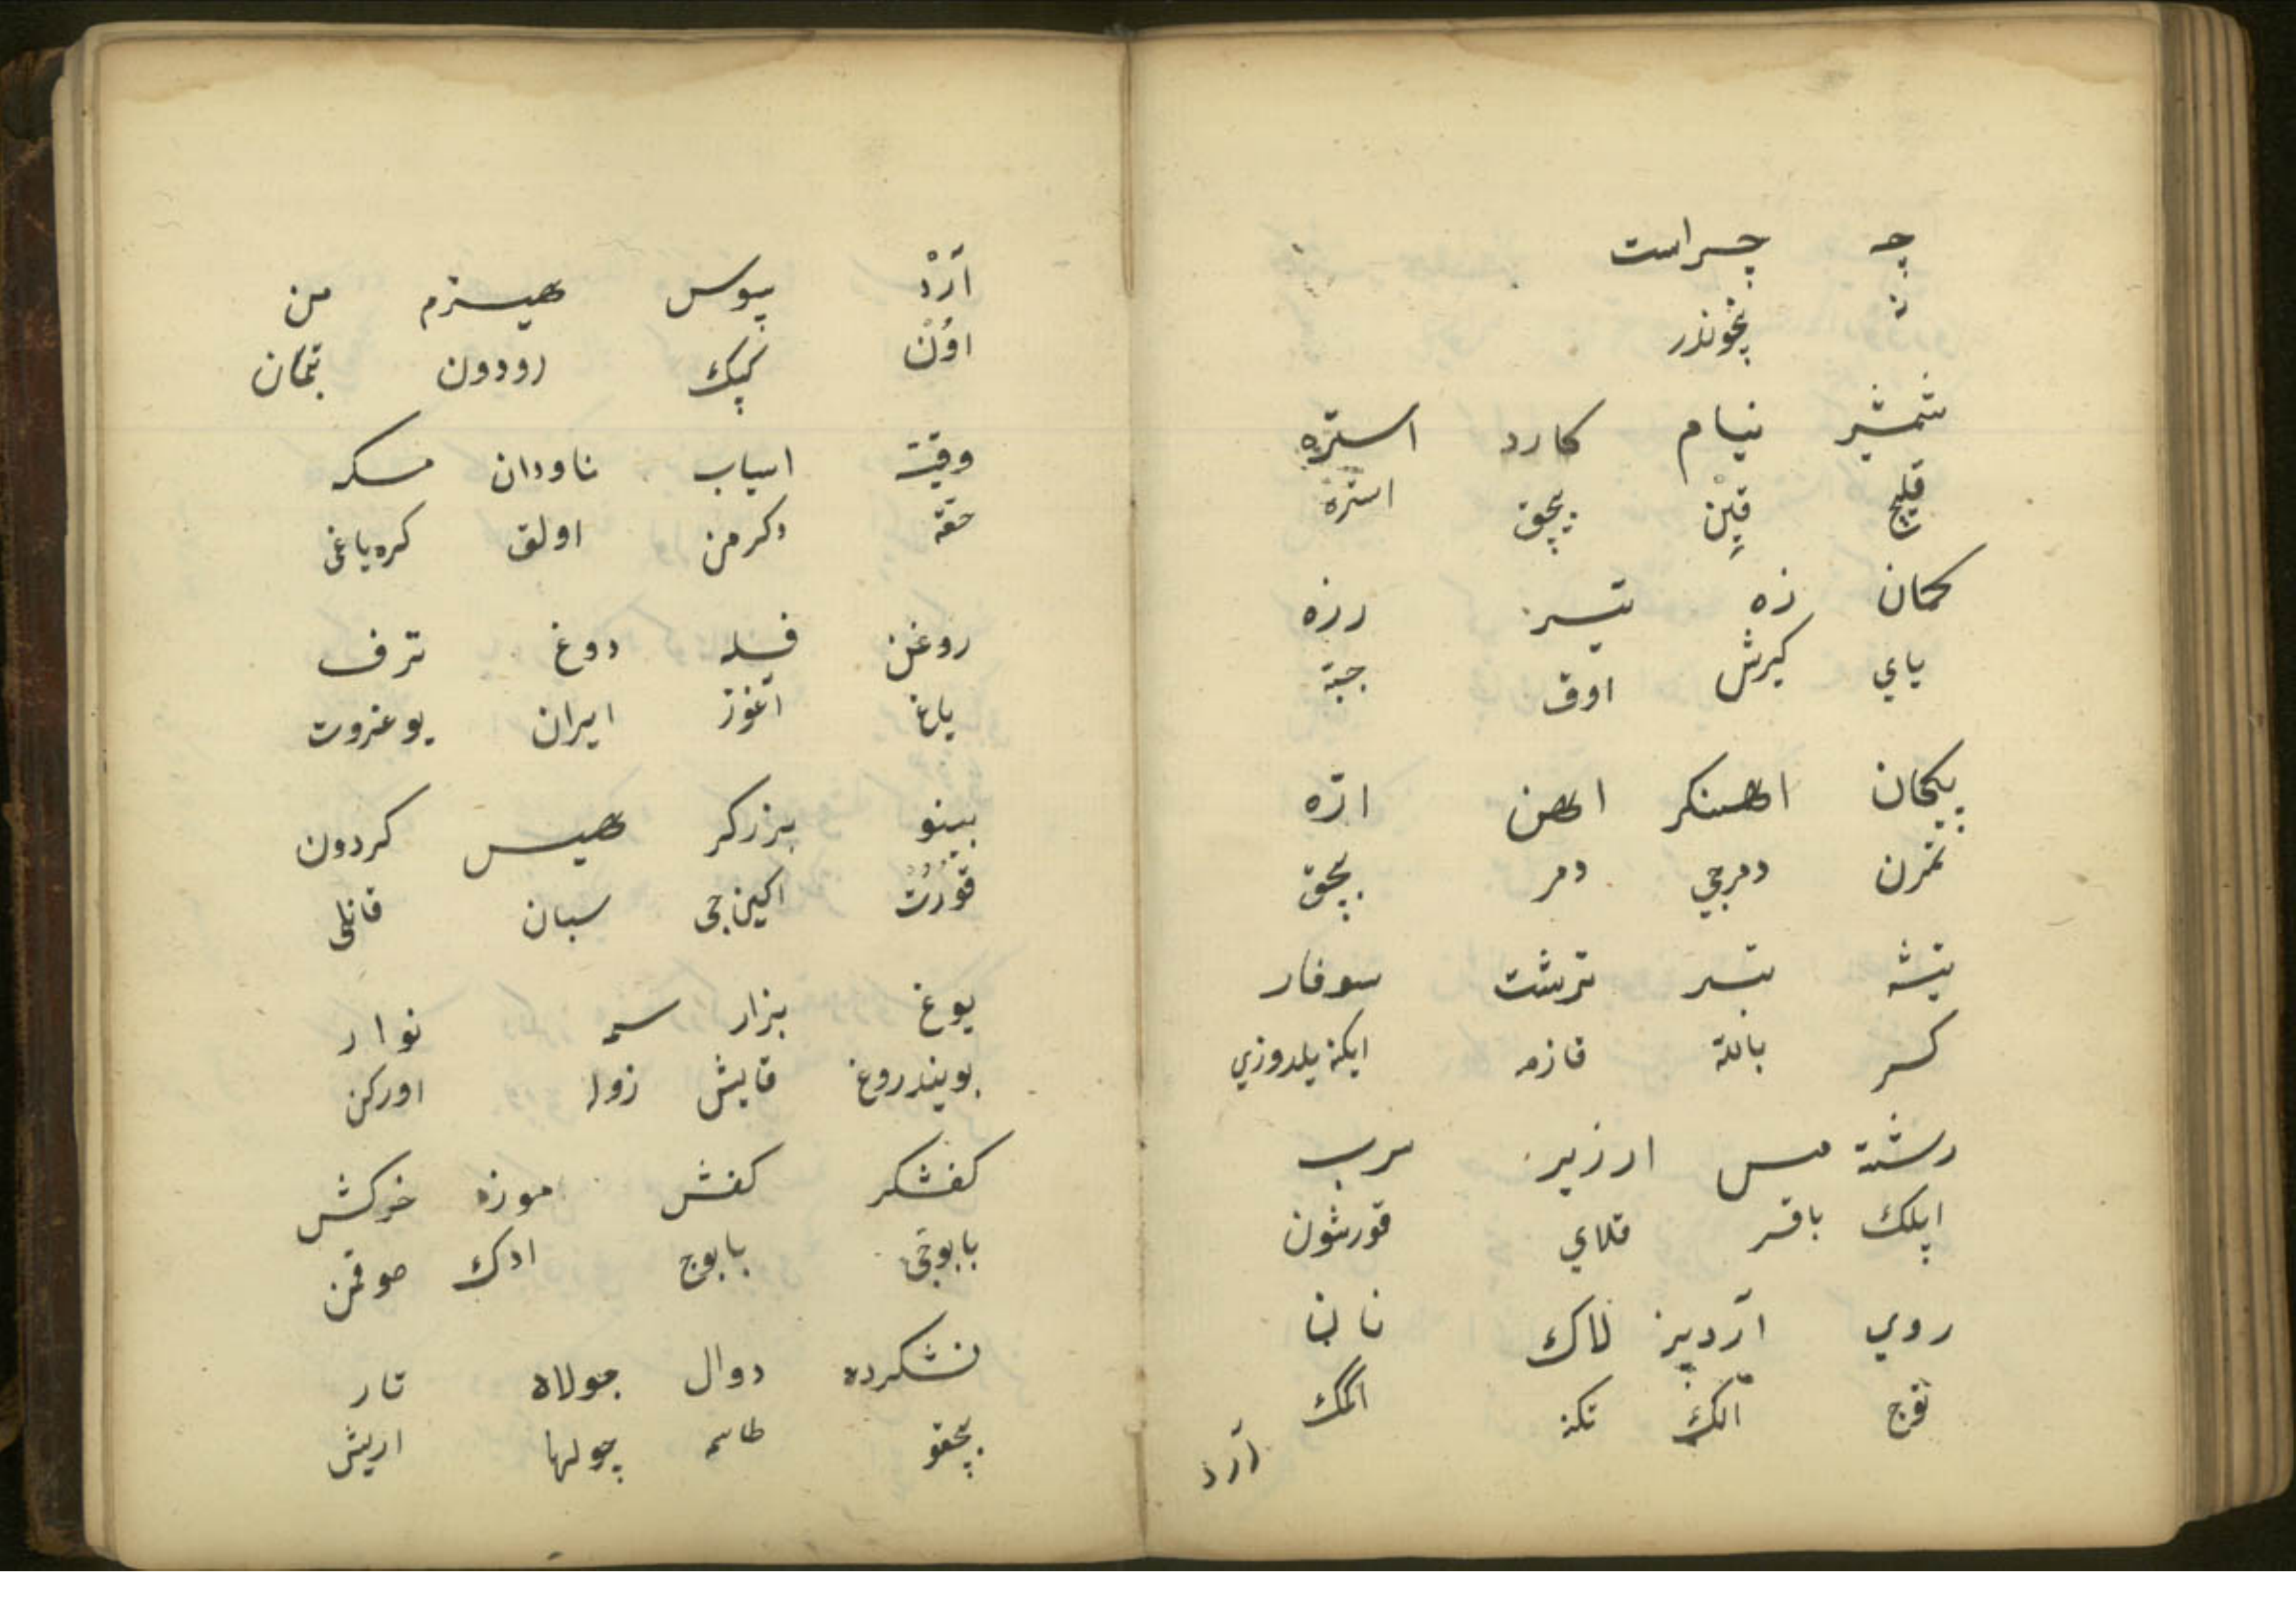 چه چراست
نه نچوندر
شمشیر نیام کارد استره
قلیچ قین بچق استره
کمان زه تیر زره
یای کیرش اوق جبه
پیکان اهنکر اهن اره
تمرن دمرجی دمر بچق
تیشه تبر سوفار
کسر بالته قازمه ایکنه یلدوزی
رشته مس ارزیز سرب
ایپلك باقر قلای قورشون
روی آردبیز لاك نان
توج الك تکنه اکمك
آرد
آرْد سپوس هیزم من
اوُنْ کپك اودون بتمان
وقیت اسیاب ناودان مسکه
حقه دکرمن اولق کره یاغی
روغن فله دوغ ترف
یاغ اغوز ایران یوغروت
پینو برزکر هیس کردون
قوُرُتْ اکین جی سبان قانلی
یوغ نوار
بویندروغ قایش زوله اورکن
کفشکر کفش موزه خرکش
بابوجی بابوج ادك صوقمن
نشکرده دوال جولاه تار
بچقو طاسمه چولها اریش